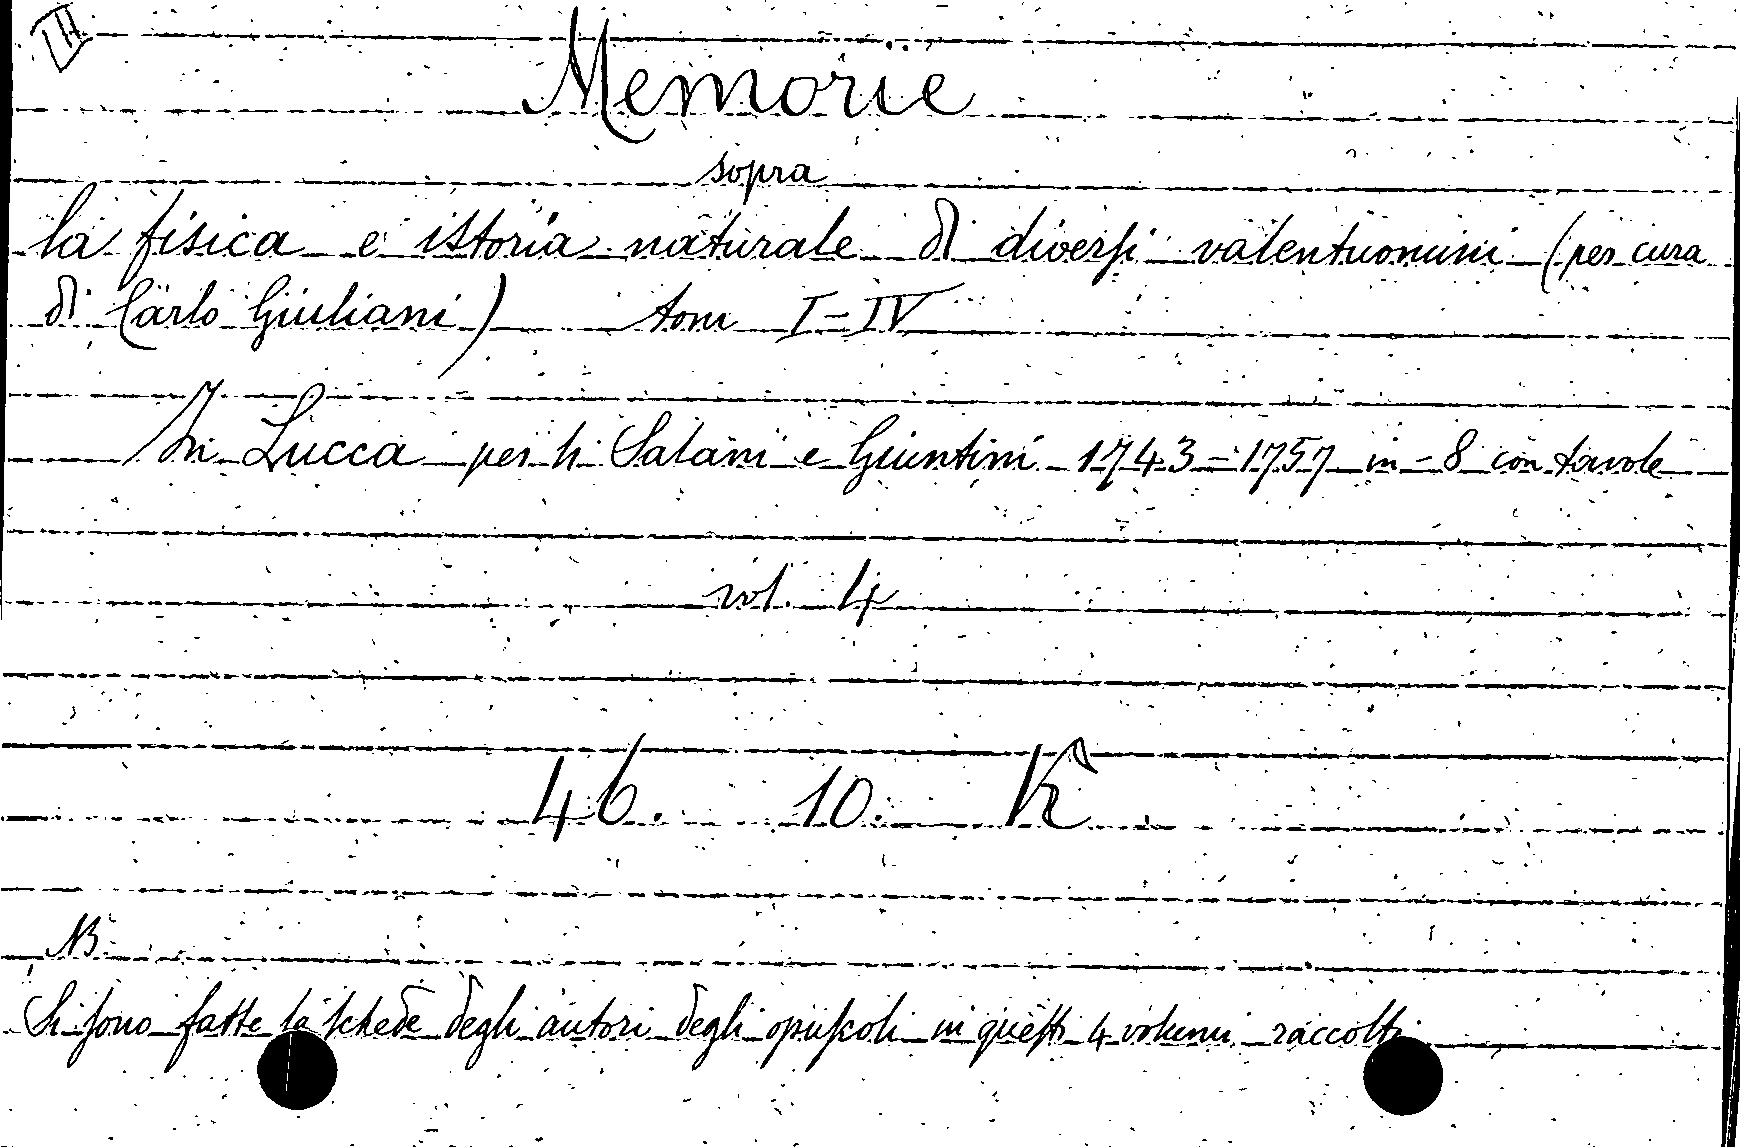 Memorie
sopra
la fisica e istoria naturale di diversi valentuomini (per cura
di Carlo Giuliani) tomi I-IV
In Lucca per li Salani e Giuntini 1743-1757 in-8 con tavole
vol. 4
46. 10. K
NB.
Si sono fatte le schede degli autori degli opuscoli in questi 4 volumi raccolti